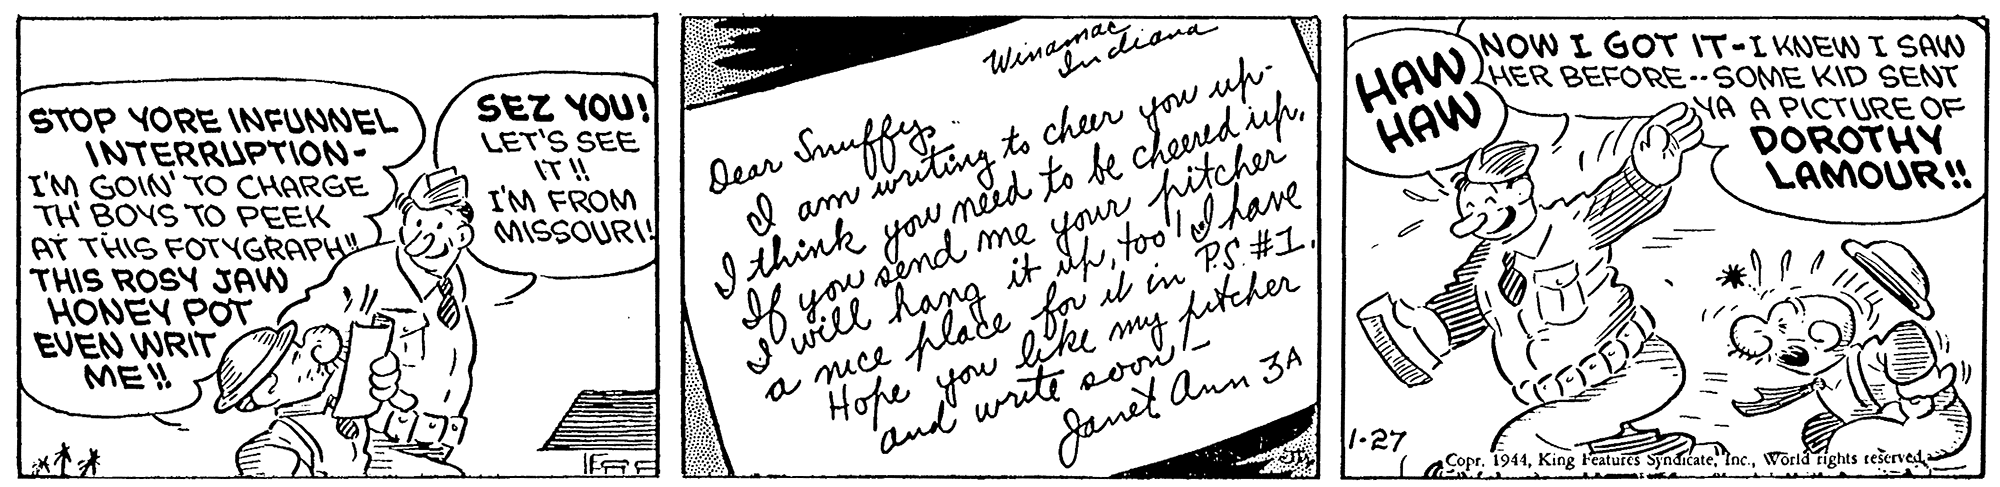 STOP YORE INFUNNEL
INTERRUPTION-
I'M GOIN' TO CHARGE
TH' BOYS TO PEEK
AT THIS FOTYGRAPH!!
THIS ROSY JAW
HONEY POT
EVEN WRIT
ME!!
SEZ YOU!
LET'S SEE
IT!!
I'M FROM
MISSOURI!
Winamac
Indiana
Dear Snuffy..
I am writing to cheer you up-
I think you need to be cheered up.
If you send me your pitcher
I will hang it up, too! I have
a nice place for it in P.S. #1.
Hope you like my pitcher
and write soon-
Janet Ann 3A
HAW
HAW
NOW I GOT IT-I KNEW I SAW
HER BEFORE--SOME KID SENT
YA A PICTURE OF
DOROTHY
LAMOUR!!
1-27
Copr. 1944, King Features Syndicate, Inc., World rights reserved.